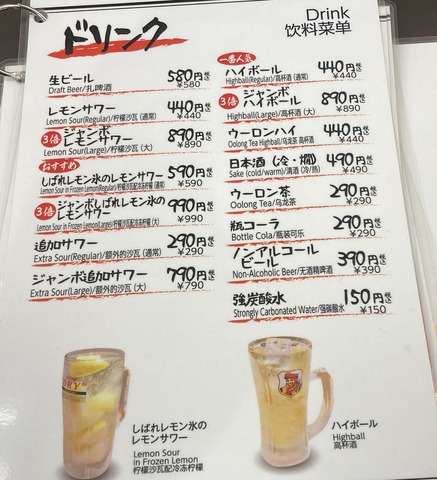 ドリンク
Drink
饮料菜单
生ビール 580円税込
Draft Beer/扎啤酒 ¥580
レモンサワー 440円税込
Lemon Sour(Regular)/柠檬沙瓦 (通常) ¥440
3倍 ジャンボレモンサワー 890円税込
Lemon Sour(Large)/柠檬沙瓦 (大) ¥890
おすすめ
しばれレモン氷のレモンサワー 590円税込
Lemon Sour in Frozen Lemon(Regular)/柠檬沙瓦配冷冻柠檬 (通常) ¥590
3倍 ジャンボしばれレモン氷のレモンサワー 990円税込
Lemon Sour in Frozen Lemon(Large)/柠檬沙瓦配冷冻柠檬 (大) ¥990
追加サワー 290円税込
Extra Sour(Regular)/额外的沙瓦 (通常) ¥290
ジャンボ追加サワー 790円税込
Extra Sour(Large)/额外的沙瓦 (大) ¥790
一番人気
ハイボール 440円税込
Highball(Regular)/高杯酒 (通常) ¥440
3倍 ジャンボハイボール 890円税込
Highball(Large)/高杯酒 (大) ¥890
ウーロンハイ 440円税込
Oolong Tea Highball/乌龙茶 高杯酒 ¥440
日本酒 (冷・燗) 490円税込
Sake (cold/warm)/清酒 (冷/热) ¥490
ウーロン茶 290円税込
Oolong Tea/乌龙茶 ¥290
瓶コーラ 290円税込
Bottle Cola/瓶装可乐 ¥290
ノンアルコールビール 390円税込
Non-Alcoholic Beer/无酒精啤酒 ¥390
強炭酸水 150円税込
Strongly Carbonated Water/强碳酸水 ¥150
しばれレモン氷の
レモンサワー
Lemon Sour
in Frozen Lemon
柠檬沙瓦配冷冻柠檬
ハイボール
Highball
高杯酒